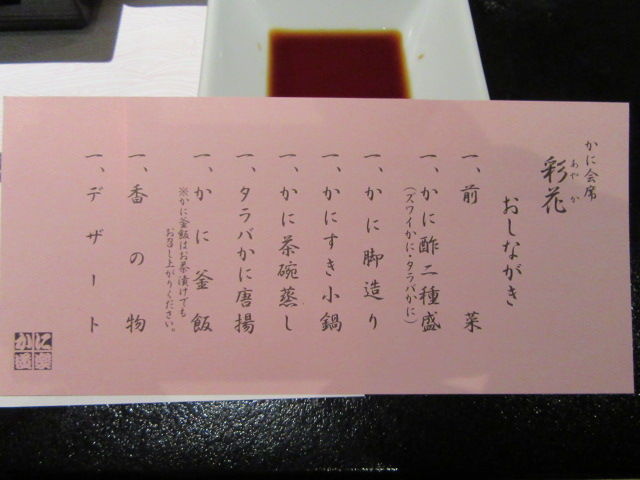 かに会席
彩花
あやか
おしながき
一、前菜
一、かに酢二種盛
（ズワイかに・タラバかに）
一、かに脚造り
一、かにすき小鍋
一、かに茶碗蒸し
一、タラバかに唐揚
一、かに釜飯
※かに釜飯はお茶漬けでも
お召し上がりください。
一、香の物
一、デザート
かに道楽